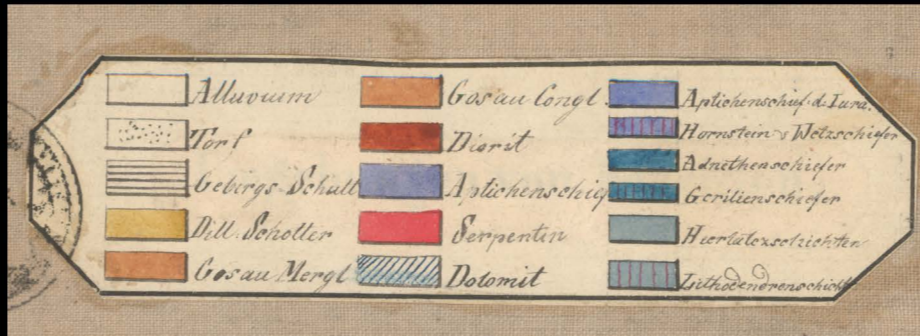 Alluvium
Torf
Gebergs-Schutt
Dill. Schotter
Gosau Mergl
Gosau Congl.
Diorit
Aptichenschief
Serpentin
Dolomit
Aptichenschief. d. Iura.
Hornstein & Wetzschiefer
Adnetherschiefer
Hierlatzschichten
Lithodendrenschicht